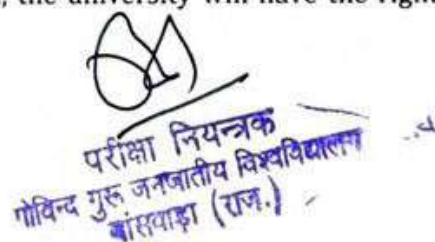 the university will have the right
परीक्षा नियन्त्रक
गोविन्द गुरू जनजातीय विश्वविद्यालय
बांसवाड़ा (राज.)